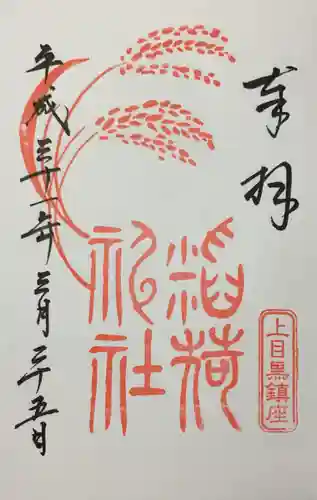 奉拝
上目黒鎮座
稲荷
神社
平成三十一年三月二十五日